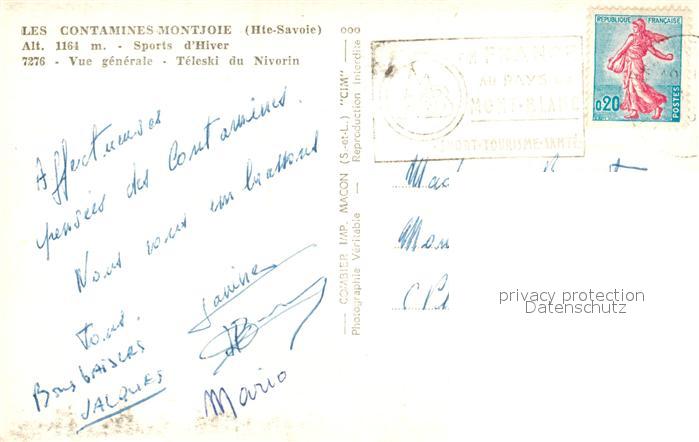 LES CONTAMINES-MONTJOIE (Hte-Savoie)
Alt. 1164 m. - Sports d'Hiver
7276 - Vue générale - Téleski du Nivorin
Affectueuses
pensées des Contamines.
Nous vous embrassons
Tous.
Janine
Bons baisers
JACQUES
Mario
COMBIER IMP. MACON (S.-et-L.) "CIM"
Photographie Véritable - Reproduction Interdite
EN FRANCE
AU PAYS DU
MONT-BLANC
SPORT-TOURISME-SANTÉ
REPUBLIQUE FRANÇAISE
0,20
POSTES
privacy protection
Datenschutz